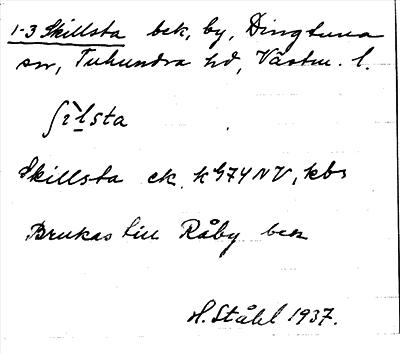 1-3 Skillsta bek, by, Dingtuna
sn, Tuhundra hd, Västm. l.
ʃìlsta
Skillsta ek. k 674 NV, kbr
Brukas till Råby
H. Ståhl 1937.